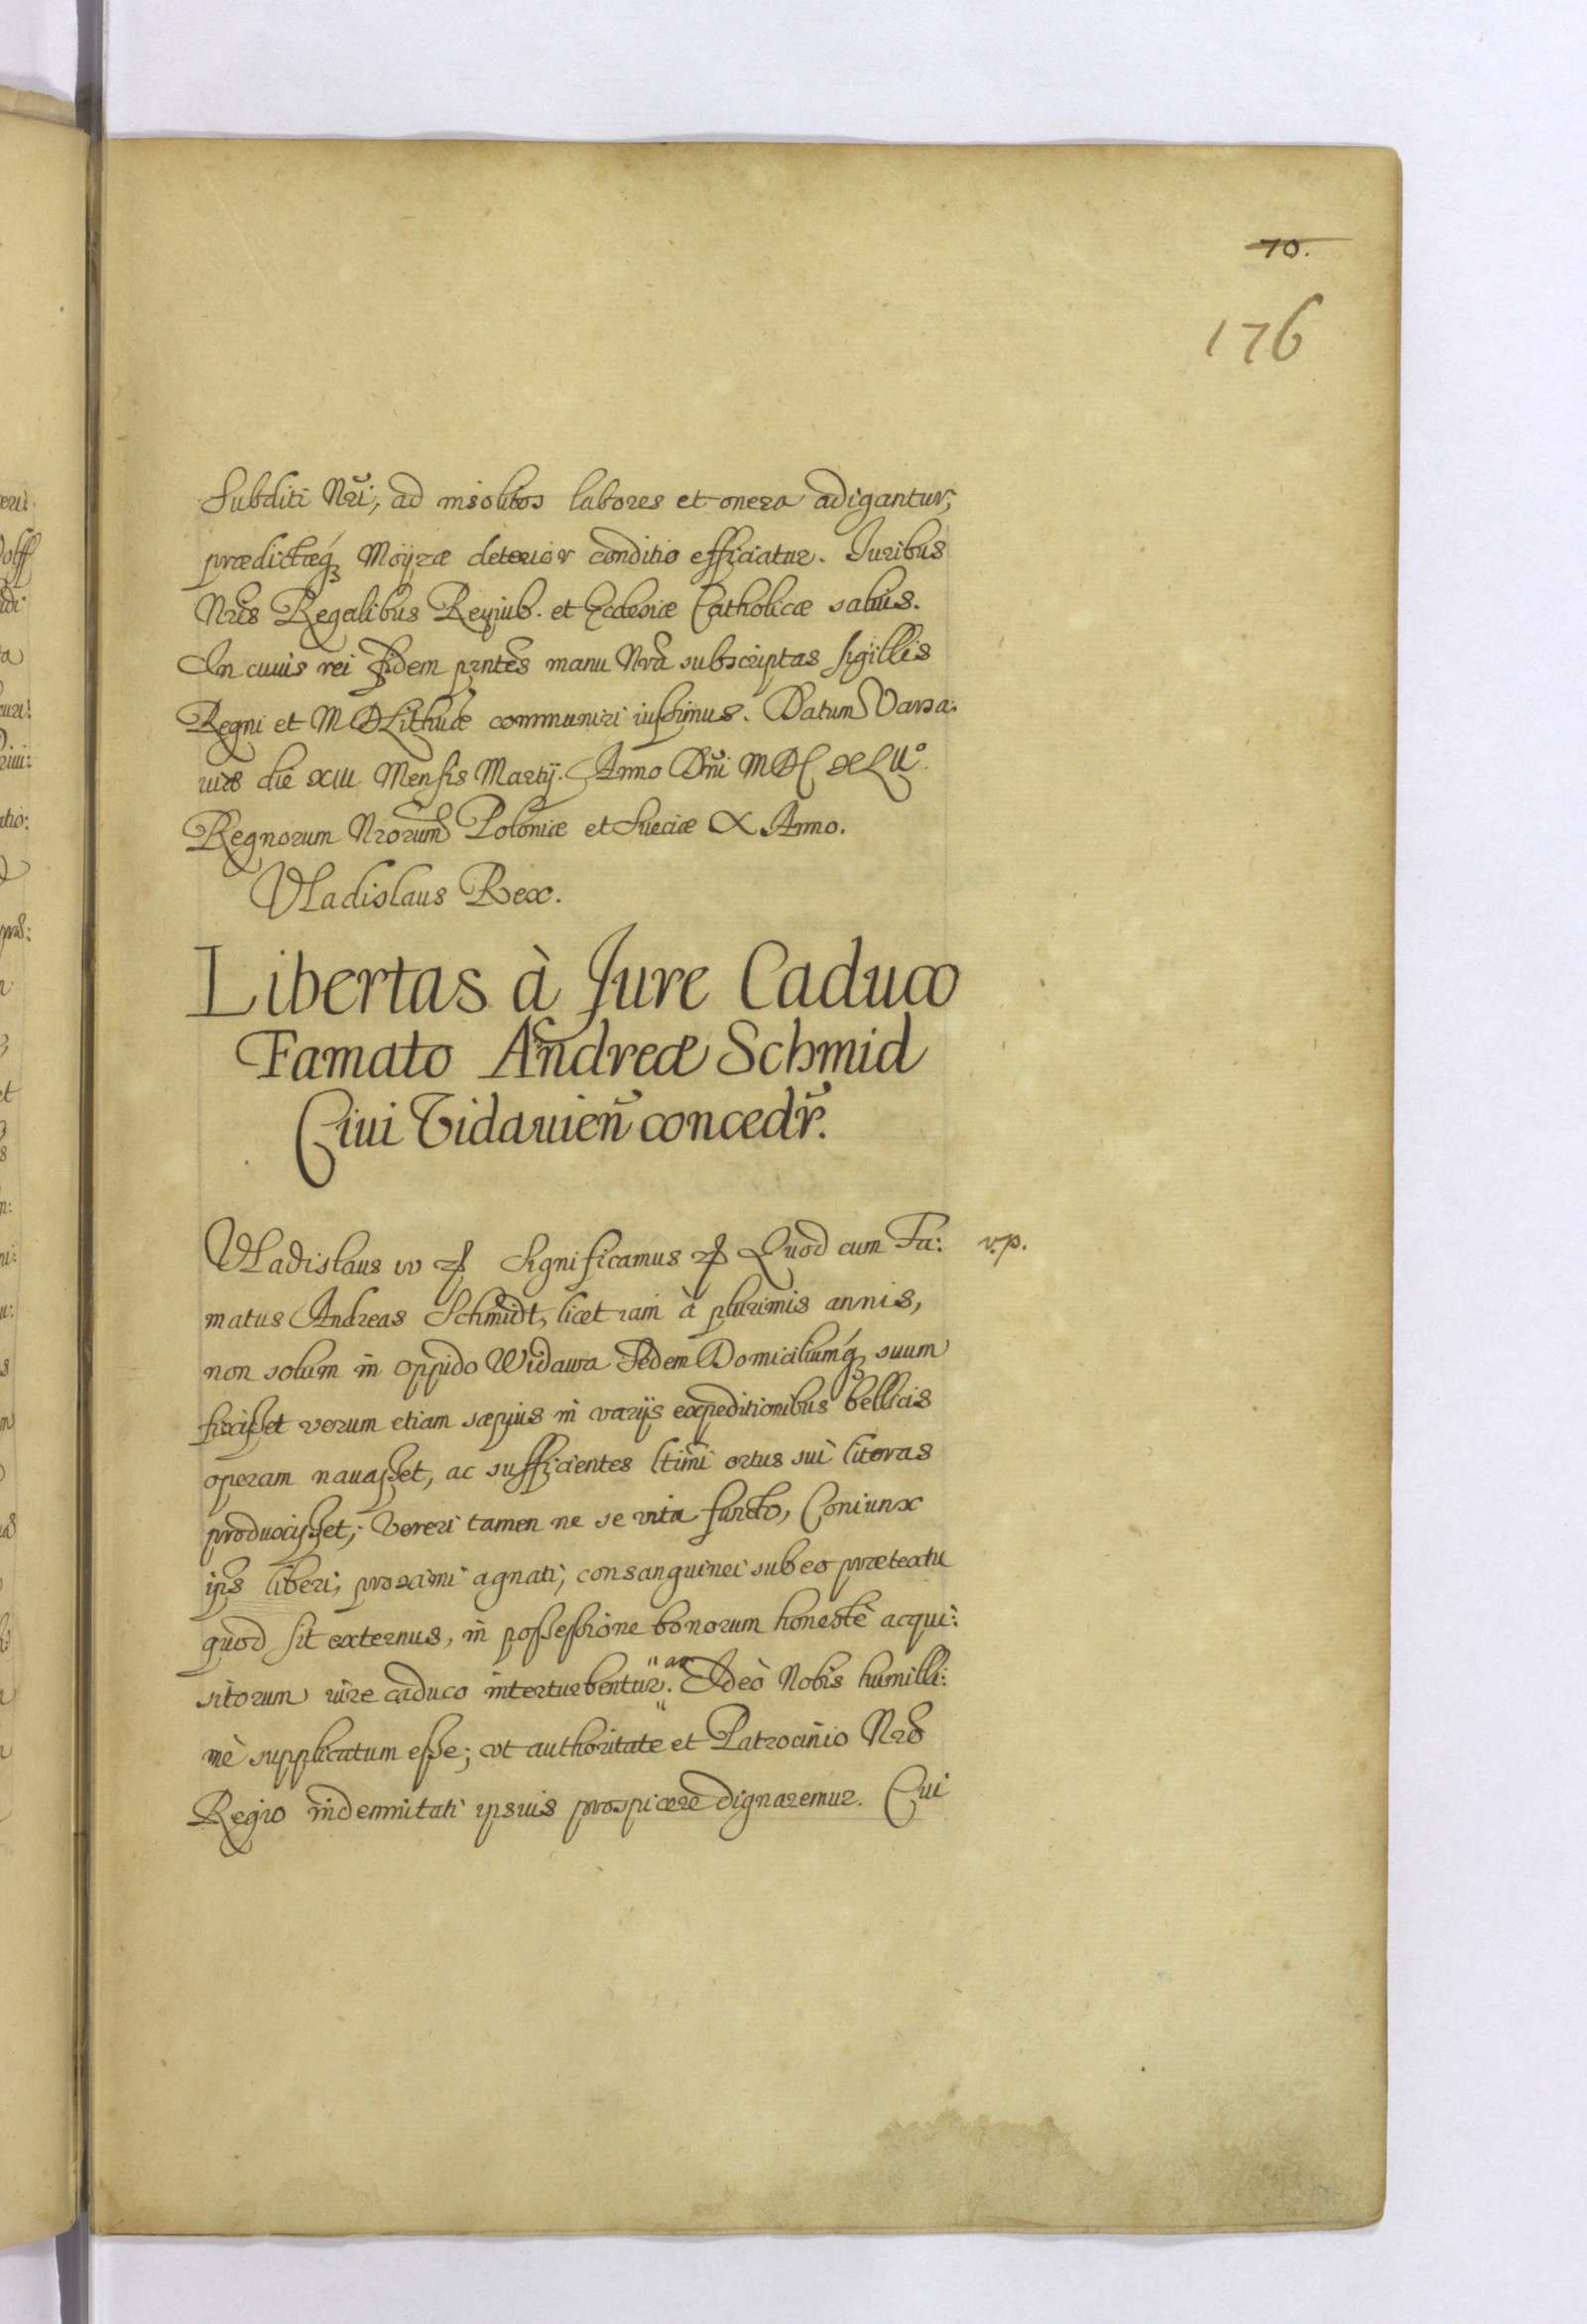 70.
176
Subditi Nrĩ, ad insolitos labores et onera adigantur,
prædictæq́ʒ Moÿzæ deterior conditio efficiatur. Juribus
Nris Regalibus Reipub. et Ecclesiæ Catholicæ salvis.
In cuius rei fidem pntes manu Nra subscriptas sigillis
Regni et M D Lithuæ communiri iussimus. Datum Varsa:
uiæ die XIII Mensis Martij. Anno Dni MDC XLIIº.
Regnorum Nrorum Poloniæ et Sueciæ X Anno.
Vladislaus Rex.
Libertas à Jure Caduco
Famato Andreæ Schmid
Ciui Vidauieñ concedr̃.
Vladislaus IV etc Significamus etc Quod cum Fa: v.p.
matus Andreas Schmidt, licet iam à plurimis annis,
non solum in oppido Widawa Sedem Domiciliumq́ʒ suum
fixisset verum etiam sæpius in varijs expeditionibus bellicis
operam nauasset, ac sufficientes ltimi ortus sui literas
produxisset; Vereri tamen ne se vita functo, Coniunx
ips liberi, proximi agnati, consanguinei sub eo prætextu
quòd sit externus, in possessione bonorum honestè acqui:
sitorum iure caduco interturbentur. "ac" Ideò Nobis humilli:
mè supplicatum esse; vt authoritate et Patrocinio Nro
Regio indemnitati ipsius prospicere dignaremur. Cui